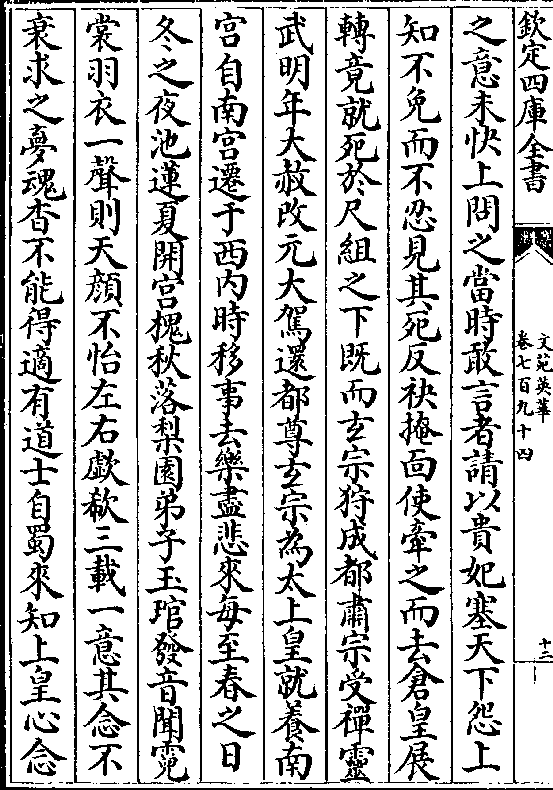 欽定四庫全書
文苑英華
卷七百九十四
十二
之意未快上問之當時敢言者請以貴妃塞天下怨上
知不免而不忍見其死反袂掩面使牽之而去倉皇展
轉竟就死於尺組之下既而玄宗狩成都肅宗受禪靈
武明年大赦改元大駕還都尊玄宗為太上皇就養南
宮自南宮遷于西内時移事去樂盡悲來每至春之日
冬之夜池蓮夏開宮槐秋落梨園弟子玉琯發音聞霓
裳羽衣一聲則天顔不怡左右歔欷三載一意其念不
衰求之夢魂杳不能得適有道士自蜀來知上皇心念